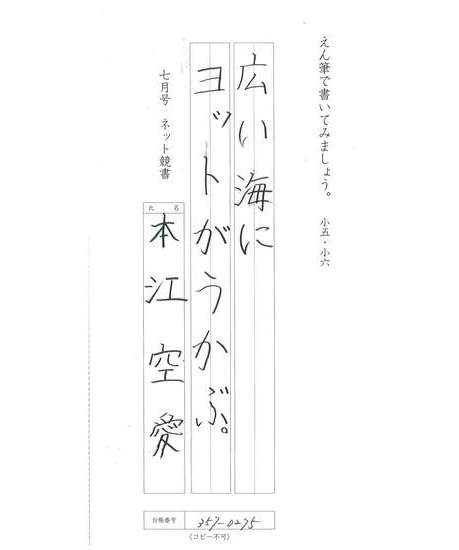 えん筆で書いてみましょう。 小五・小六
広い海に
ヨットがうかぶ。
七月号 ネット競書
氏 名
本江空愛
台帳番号 357-0275
(コピー不可)